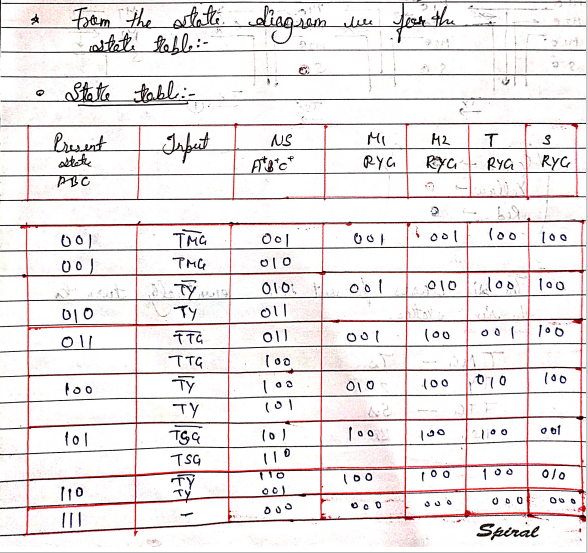 * From the state diagram we form the
state table:-
• State table:-
Present Input NS M1 M2 T S
state A⁺B⁺C⁺ RYG RYG RYG RYG
ABC
001 T̅M̅G̅ 001 001 001 100 100
001 TMG 010
T̅Y̅ 010 001 010 100 100
010 TY 011
011 T̅T̅G̅ 011 001 100 001 100
TTG 100
100 T̅Y̅ 100 010 100 010 100
TY 101
101 T̅S̅G̅ 101 100 100 100 001
TSG 110
T̅Y̅ 110 100 100 100 010
110 TY 001
111 - 000 000 000 000 000
Spiral